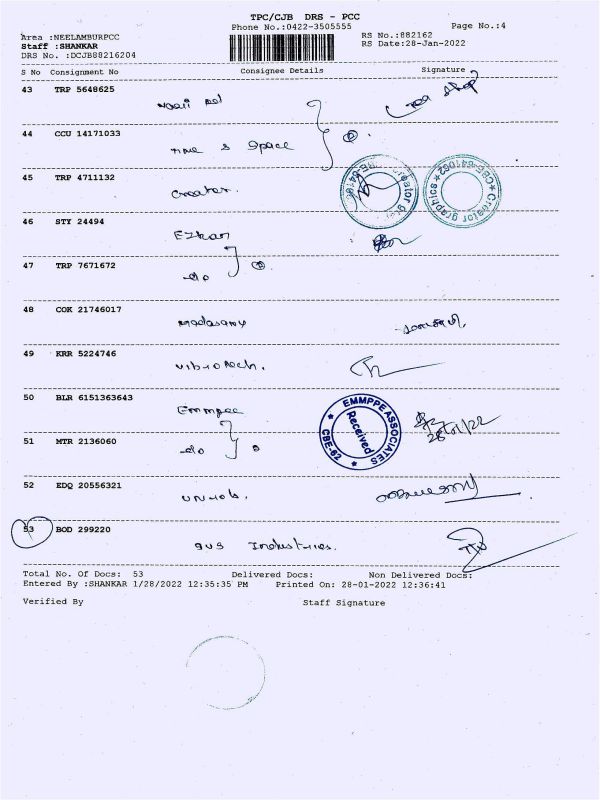 TPC/CJB DRS - PCC
Phone No.:0422-3505555 Page No.:4
Area :NEELAMBURPCC RS No.:882162
Staff :SHANKAR RS Date:28-Jan-2022
DRS No. :DCJB88216204
S No Consignment No Consignee Details Signature
43 TRP 5648625
44 CCU 14171033
Time & Space
45 TRP 4711132
Creator.
Creator graphics
CBE-641062
46 STY 24494
Ezhan
47 TRP 7671672
do
48 COK 21746017
Madasamy
49 KRR 5224746
Vibrotech.
50 BLR 6151363643
Emmpee
EMMPPE ASSOCIATES
Received
CBE-62
28/01/22
51 MTR 2136060
do
52 EDQ 20556321
53 BOD 299220
gvs Industries.
Total No. Of Docs: 53 Delivered Docs: Non Delivered Docs:
Entered By :SHANKAR 1/28/2022 12:35:35 PM Printed On: 28-01-2022 12:36:41
Verified By Staff Signature